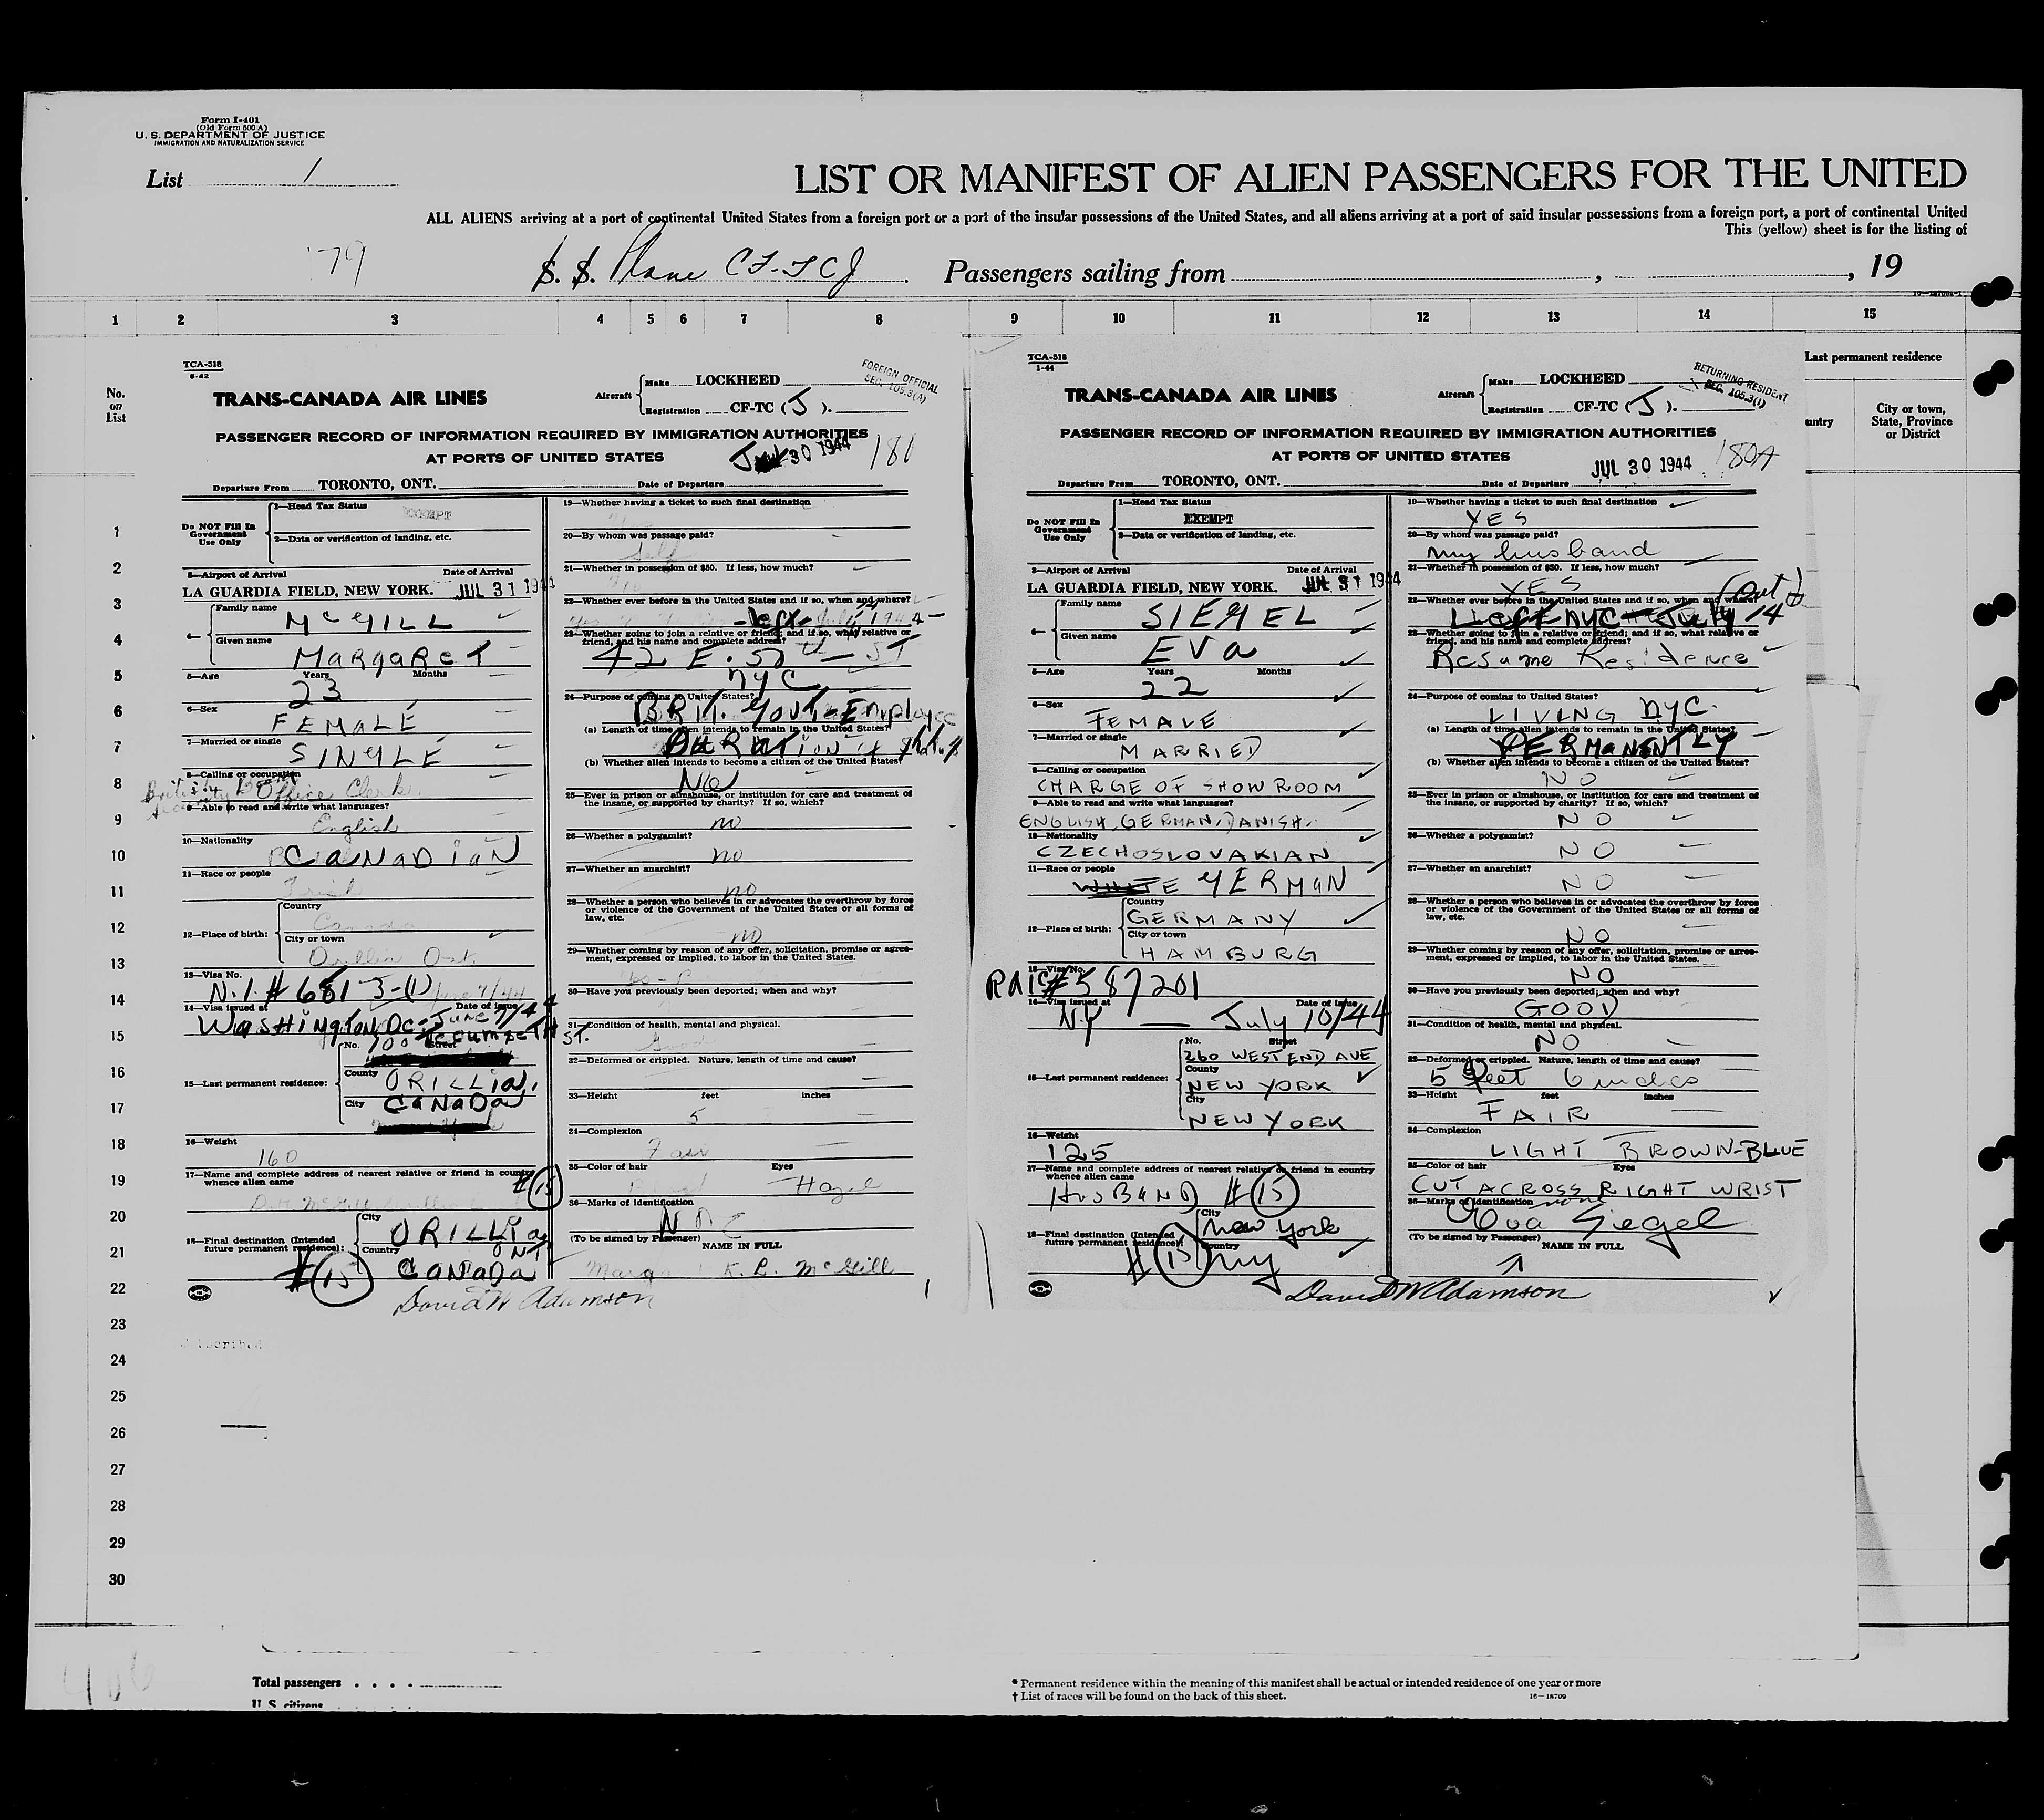 Form I-401
(Old Form 500 A)
U. S. DEPARTMENT OF JUSTICE
IMMIGRATION AND NATURALIZATION SERVICE
List 1
LIST OR MANIFEST OF ALIEN PASSENGERS FOR THE UNITED
ALL ALIENS arriving at a port of continental United States from a foreign port or a port of the insular possessions of the United States, and all aliens arriving at a port of said insular possessions from a foreign port, a port of continental United
This (yellow) sheet is for the listing of
79
S. S. Plane CF-TCJ Passengers sailing from , , 19
1 2 3 4 5 6 7 8 9 10 11 12 13 14 15
No. on List
Last permanent residence
untry
City or town, State, Province or District
TCA-518
6-42
FOREIGN OFFICIAL
SEC. 105.3(A)
TRANS-CANADA AIR LINES
Aircraft Make LOCKHEED
Registration CF-TC (J).
PASSENGER RECORD OF INFORMATION REQUIRED BY IMMIGRATION AUTHORITIES
AT PORTS OF UNITED STATES
JUL 30 1944 180
Departure From TORONTO, ONT. Date of Departure
Do NOT Fill In Government Use Only
1—Head Tax Status EXEMPT
2—Data or verification of landing, etc.
3—Airport of Arrival Date of Arrival
LA GUARDIA FIELD, NEW YORK. JUL 31 1944
4— Family name McGILL
Given name MARGARET
5—Age Years Months
23
6—Sex
FEMALE
7—Married or single
SINGLE
8—Calling or occupation
British Office Clerk.
9—Able to read and write what languages?
English
10—Nationality
CANADIAN
11—Race or people
Irish
12—Place of birth: Country
Canada
City or town
Orillia Ont.
13—Visa No.
N.I. # 6813-(1)
14—Visa issued at Date of issue
Washington DC. June 7/44
15—Last permanent residence: No. Street
700 TECUMSETH ST.
County ORILLIA.
City CANADA
16—Weight
160
17—Name and complete address of nearest relative or friend in country whence alien came
# 15
18—Final destination (Intended future permanent residence): City
ORILLIA
ONT
Country
CANADA
# 15
David W Adamson
19—Whether having a ticket to such final destination
20—By whom was passage paid?
Self
21—Whether in possession of $50. If less, how much?
22—Whether ever before in the United States and if so, when and where?
left July 14 1944
23—Whether going to join a relative or friend; and if so, what relative or friend, and his name and complete address?
NYC
24—Purpose of coming to United States?
BRIT. GOVT. - Employee
(a) Length of time alien intends to remain in the United States?
DURATION of status
(b) Whether alien intends to become a citizen of the United States?
No
25—Ever in prison or almshouse, or institution for care and treatment of the insane, or supported by charity? If so, which?
no
26—Whether a polygamist?
no
27—Whether an anarchist?
no
28—Whether a person who believes in or advocates the overthrow by force or violence of the Government of the United States or all forms of law, etc.
no
29—Whether coming by reason of any offer, solicitation, promise or agreement, expressed or implied, to labor in the United States.
30—Have you previously been deported; when and why?
31—Condition of health, mental and physical.
Good
32—Deformed or crippled. Nature, length of time and cause?
33—Height feet inches
5
34—Complexion
Fair
35—Color of hair Eyes
Hazel
36—Marks of identification
(To be signed by Passenger) NAME IN FULL
K. L. McGill
TCA-518
1-44
RETURNING RESIDENT
SEC. 105.3(1)
TRANS-CANADA AIR LINES
Aircraft Make LOCKHEED
Registration CF-TC (J).
PASSENGER RECORD OF INFORMATION REQUIRED BY IMMIGRATION AUTHORITIES
AT PORTS OF UNITED STATES
JUL 30 1944 180A
Departure From TORONTO, ONT. Date of Departure
Do NOT Fill In Government Use Only
1—Head Tax Status EXEMPT
2—Data or verification of landing, etc.
3—Airport of Arrival Date of Arrival
LA GUARDIA FIELD, NEW YORK. JUL 31 1944
4— Family name SIEGEL
Given name EVA
5—Age Years Months
22
6—Sex
FEMALE
7—Married or single
MARRIED
8—Calling or occupation
CHARGE OF SHOW ROOM
9—Able to read and write what languages?
ENGLISH, GERMAN, DANISH.
10—Nationality
CZECHOSLOVAKIAN
11—Race or people
WHITE GERMAN
12—Place of birth: Country
GERMANY
City or town
HAMBURG
13—Visa No.
# 587201
14—Visa issued at Date of issue
NY — July 10/44
15—Last permanent residence: No. Street
260 WEST END AVE
County
NEW YORK
City
NEW YORK
16—Weight
125
17—Name and complete address of nearest relative or friend in country whence alien came
HUSBAND # 15
18—Final destination (Intended future permanent residence): City
New York
Country
NY
# 15
David W Adamson
19—Whether having a ticket to such final destination
YES
20—By whom was passage paid?
my husband
21—Whether in possession of $50. If less, how much?
YES
22—Whether ever before in the United States and if so, when and where?
Left NYC - July 14
23—Whether going to join a relative or friend; and if so, what relative or friend, and his name and complete address?
Resume Residence
24—Purpose of coming to United States?
LIVING NYC.
(a) Length of time alien intends to remain in the United States?
PERMANENTLY
(b) Whether alien intends to become a citizen of the United States?
NO
25—Ever in prison or almshouse, or institution for care and treatment of the insane, or supported by charity? If so, which?
NO
26—Whether a polygamist?
NO
27—Whether an anarchist?
NO
28—Whether a person who believes in or advocates the overthrow by force or violence of the Government of the United States or all forms of law, etc.
NO
29—Whether coming by reason of any offer, solicitation, promise or agreement, expressed or implied, to labor in the United States.
NO
30—Have you previously been deported; when and why?
GOOD
31—Condition of health, mental and physical.
NO
32—Deformed or crippled. Nature, length of time and cause?
5 feet 6 inches
33—Height feet inches
FAIR
34—Complexion
LIGHT BROWN-BLUE
35—Color of hair Eyes
CUT ACROSS RIGHT WRIST
36—Marks of identification none
Eva Siegel
(To be signed by Passenger) NAME IN FULL
1
2
3
4
5
6
7
8
9
10
11
12
13
14
15
16
17
18
19
20
21
22
23
24
25
26
27
28
29
30
406
Total passengers . . . .
U. S. citizens
* Permanent residence within the meaning of this manifest shall be actual or intended residence of one year or more
† List of races will be found on the back of this sheet.
16—18709